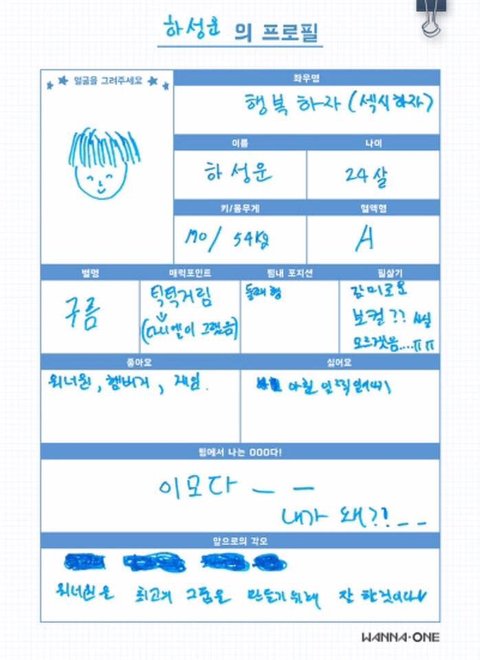 하성운 의 프로필
얼굴을 그려주세요
좌우명
행복 하자 (섹시하자)
이름
나이
하성운
24살
키/몸무게
혈액형
170 / 54kg
A
별명
매력포인트
팀내 포지션
필살기
구름
틱틱거림
(다니엘이 그랬음)
둘째형
감미로운
보컬?? 사실
모르겠음....ㅠㅠ
좋아요
싫어요
워너원, 햄버거, 게임.
아침 일찍 일어나기
팀에서 나는 OOO다!
이모다 ㅡ ㅡ
내가 왜?! _ _
앞으로의 각오
워너원은 최고의 그룹을 만들기위해 잘 할것이다
WANNA·ONE